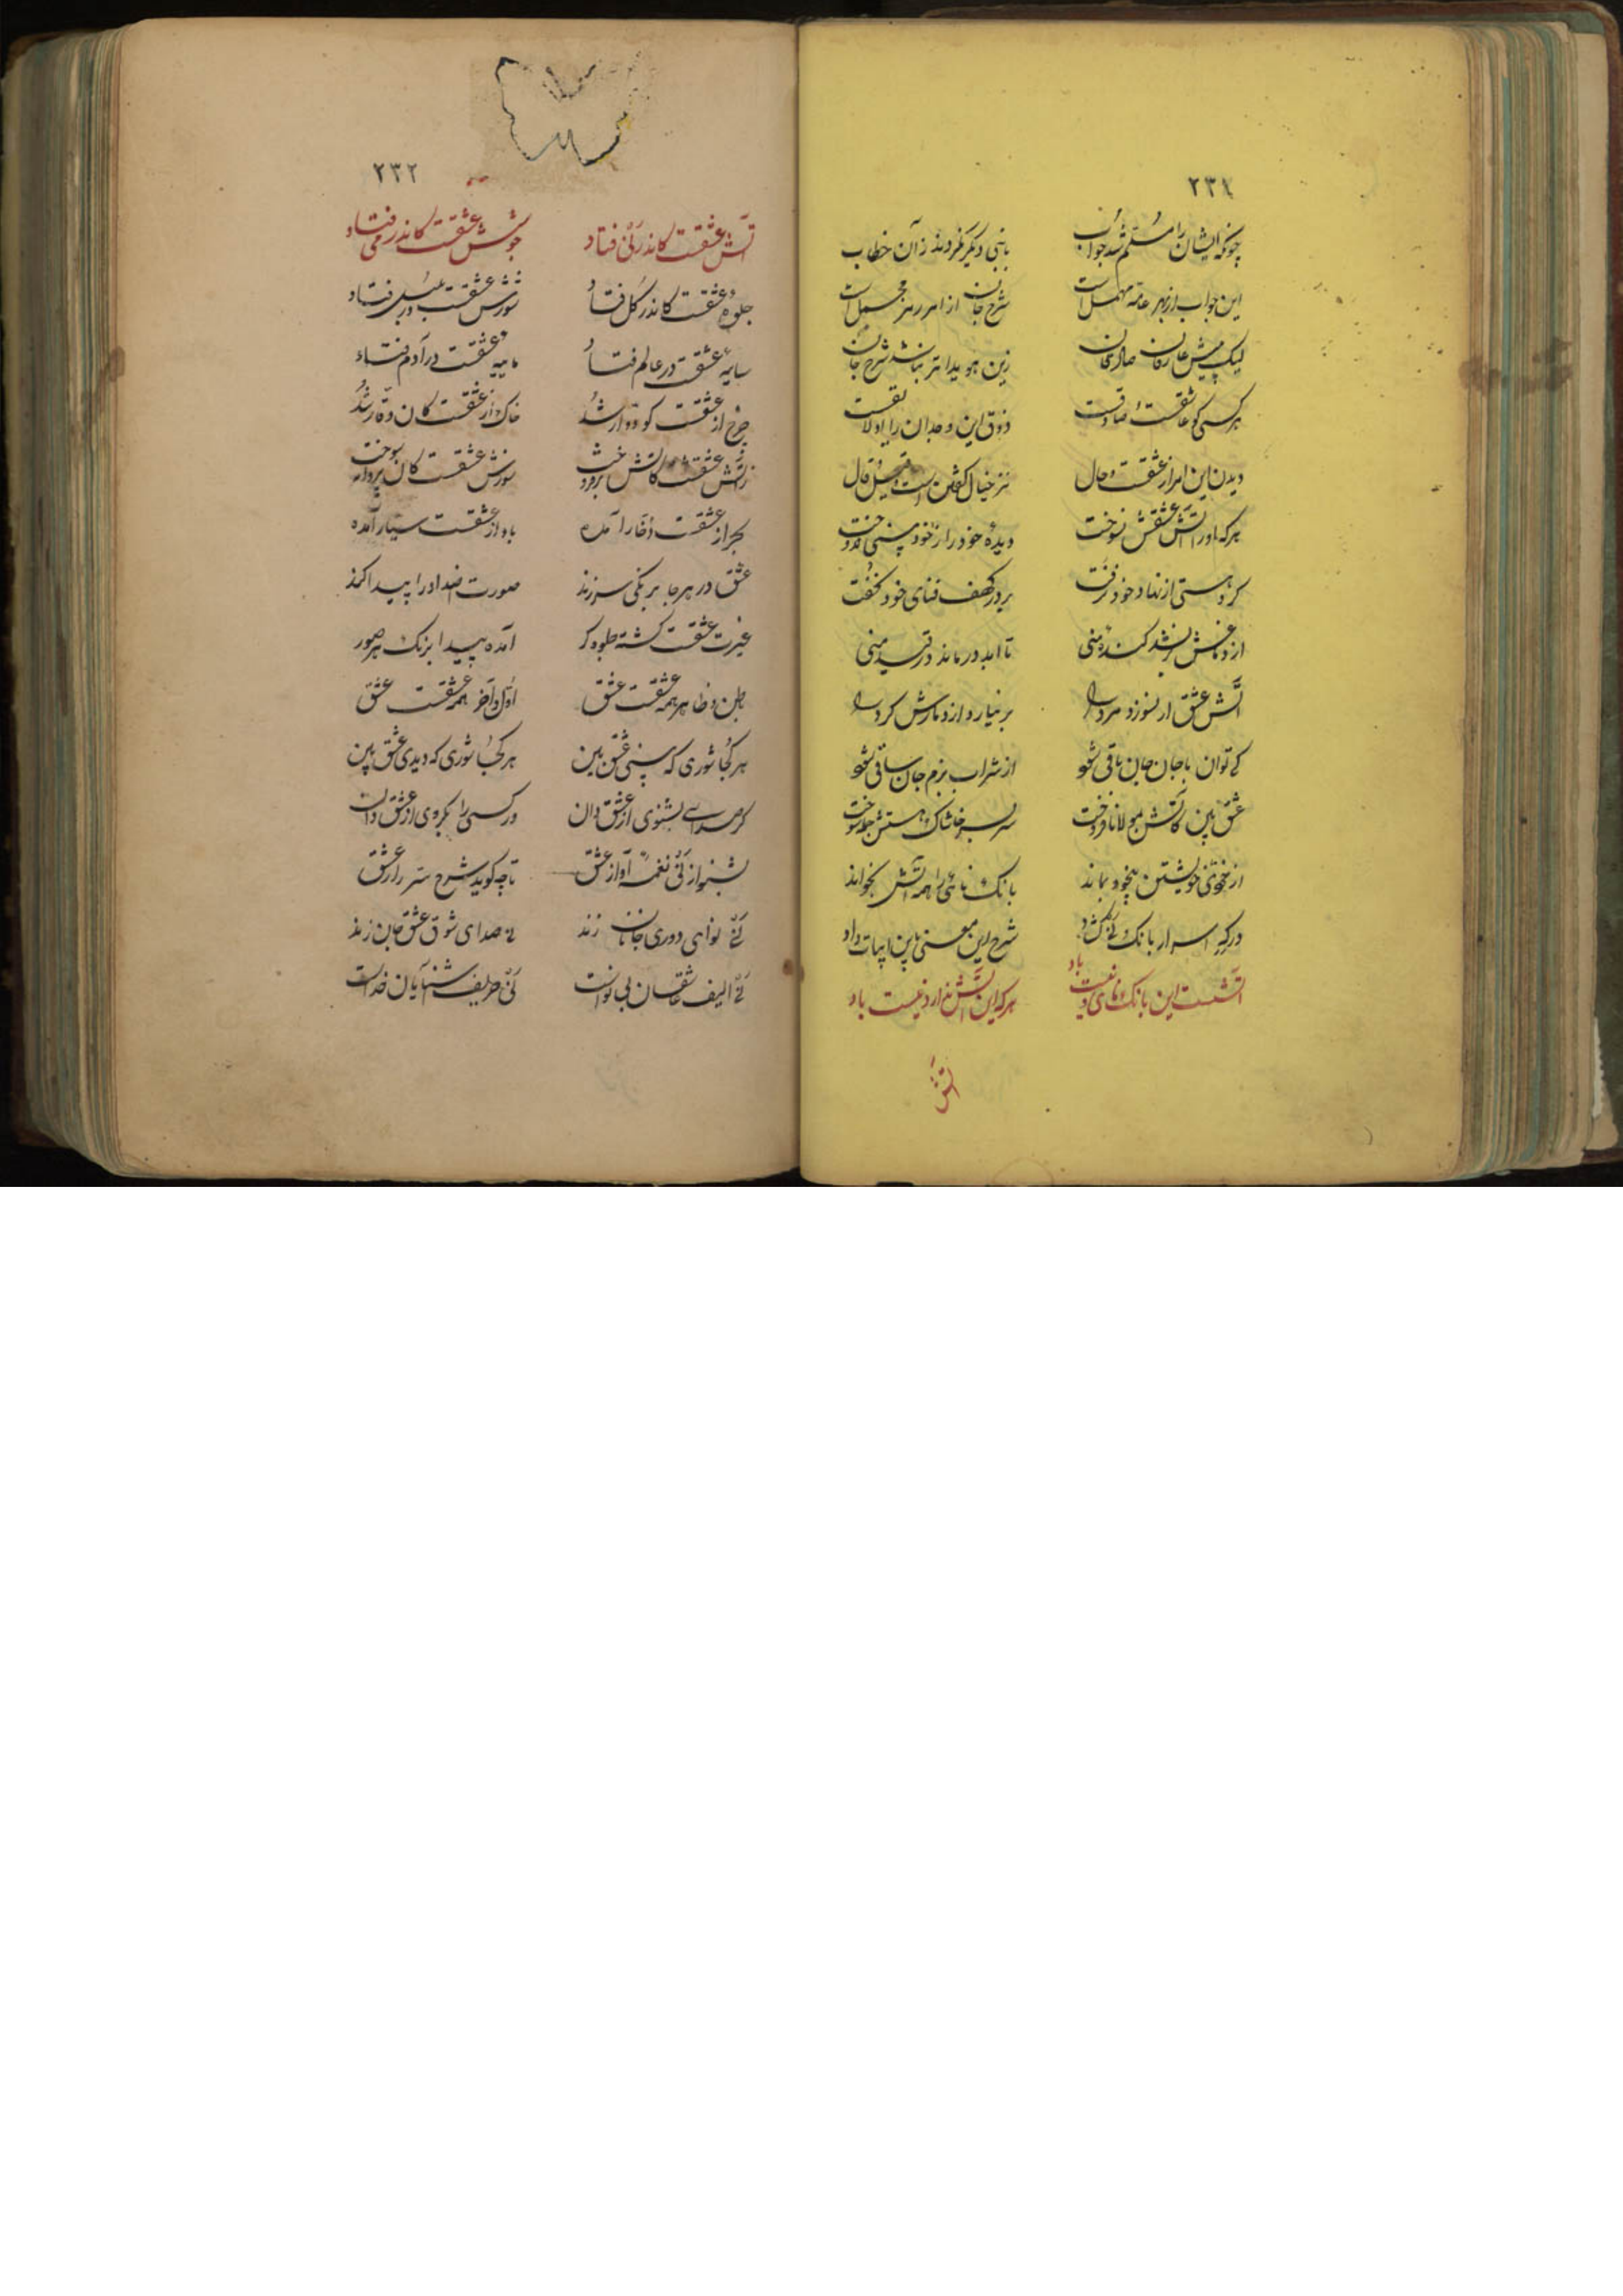 ۲۳۱
چونکه ایشان را مسلم شد جواب بانبی دیگر نکردند زآن خطاب
این جواب از بهر عامه مهمل است شرح جان از امر رب مجمل است
لیک پیش عارفان صادقان زین هویداتر نباشد شرح جان
هر کسی کو عاشقست و صادقست ذوق این وجدان را لایقست
دیدن این امر از عشقست و حال
هرکه او را آتش عشقش نسوخت دیدهٔ خود را ز خود بینی ندوخت
گرد هستی از نهاد خود نرفت در کهف فنای خود نخفت
از دماغش نشد کنده منی تا ابد درماند در قید منی
آتش عشق ار نسوزد مرد را بر نیارد از دمارش کرد را
کی توان باجان جان باقی شود از شراب بزم جان ساقی شود
عشق بین کآتش بمولانا فروخت سر بسر خاشاک هستیش جمله سوخت
از خودی خویشتن بیخود بماند بانک نائی را همه آتش بخواند
در که اسرار بانک نی گشاد شرح این معنی باین ابیات داد
آتشست این بانک نای و نیست باد هرکه این آتش ندارد نیست باد
آتش
۲۳۲
آتش عشقست کاندر نی فتاد جوشش عشقست کاندر می فتاد
جلوهٔ عشقست کاندر گل فتاد شورش عشقست در بلبل فتاد
سایهٔ عشقست در عالم فتاد مایهٔ عشقست در آدم فتاد
چرخ از عشقست کو دوار شد خاک از عشقست کان وقار شد
زآتش عشقست کآتش برفروخت سوزش عشقست کان پروانه سوخت
بحر از عشقست زخار آمده باد از عشقست سیار آمده
عشق در هرجا برنکی سر زند صورت اضداد را پیدا کند
غیرت عشقست گشته جلوه کر آمده پیدا برنک هر صور
باطن و ظاهر همه عشقست عشق اول و آخر همه عشقست عشق
هر کجا شوری که بینی عشق بین هر کجا شوری که دیدی عشق بین
کر صدائی بشنوی از عشق دان ور کسی را بکروی از عشق دان
بشنو از نی نغمهٔ آواز عشق تا چه کوید شرح سر راز عشق
نی نوای دوری جانان زند نی صدای شوق عشق جان زند
نی الیف عاشقان بی نواست نی حریف آشنایان خداست